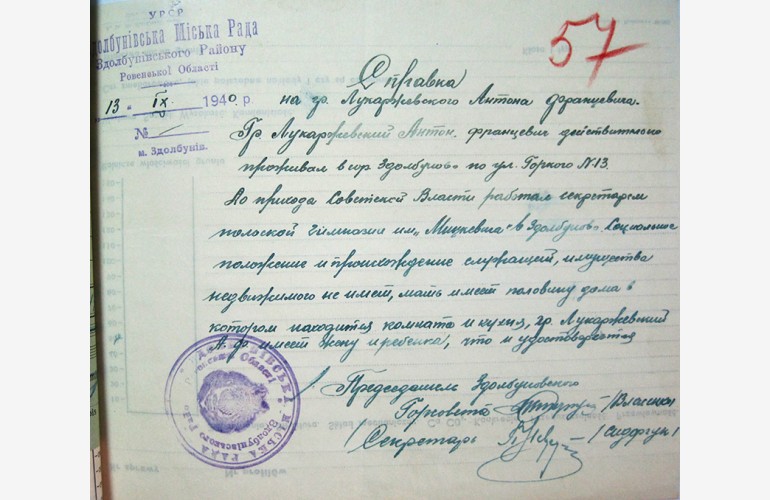 УРСР
Здолбунівська Міська Рада
Здолбунівського Району
Ровенської Області
13 " IX 1940 р
№
м. Здолбунів.
57
Справка
на гр. Лукаржевского Антона Францевича.
Гр. Лукаржевский Антон. францевич действительно
проживал в гор. Здолбунов по ул. Горкого N 13.
До прихода Советской Власти работал секретарем
полской гимназии им „Мицкевича" в Здолбунов. Социальное
положение и происхождение служащий, имущества
недвижимого не имел, мать имеет половину дома в
котором находится комната и кухня, гр. Лукаржевский
А. Ф. имеет жену и ребенка, что и удостоверяется
Председатель Здолбуновского
Горсовета
/ Секретарь